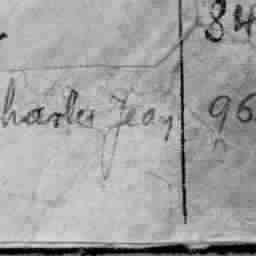 84
harles Jean 96